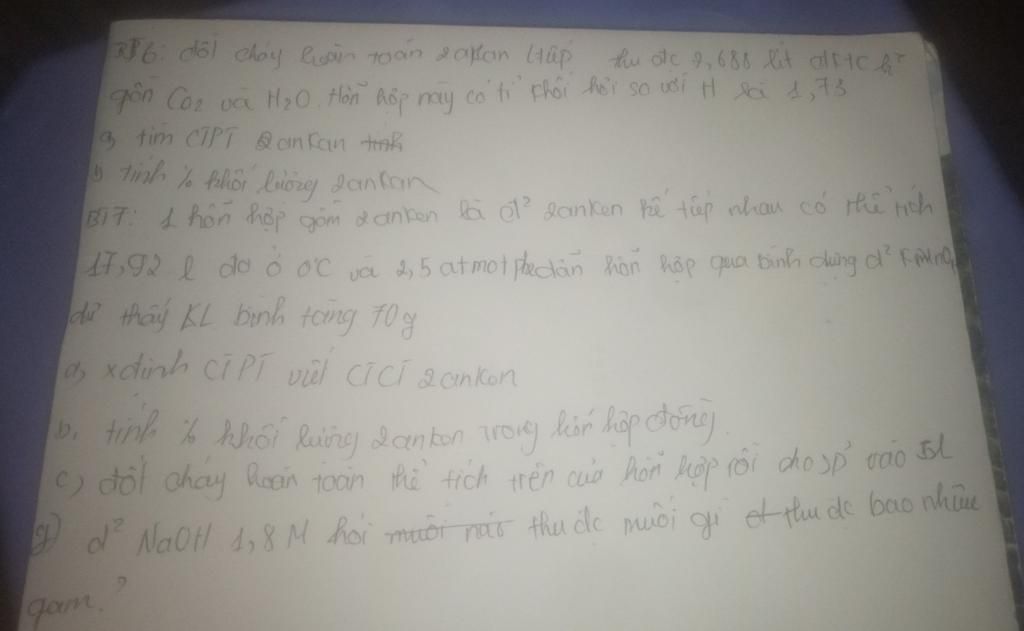 BT6: đốt cháy hoàn toàn 2ankan ltiếp thu đc 2,688 lit đktc h²
gồm CO2 và H2O. Hỗn hợp này có tỉ khối hơi so với H là 1,73
a, tìm CTPT 2ankan
b, tính % khối lượng 2ankan
BT7: 1 hỗn hợp gồm 2anken là đ² 2anken kế tiếp nhau có thể tích
17,92 l đo ở 0°C và 2,5 atmotphe dẫn hỗn hợp qua bình đựng d² KMnO4
dư thấy KL bình tăng 70g
a, xđịnh CTPT viết CTCT 2anken
b, tính % khối lượng 2anken trong hỗn hợp
c) đốt cháy hoàn toàn thể tích trên của hỗn hợp rồi cho SP vào 5l
d² NaOH 1,8 M hỏi muối nào thu đc muối gì thu đc bao nhiêu
gam.?